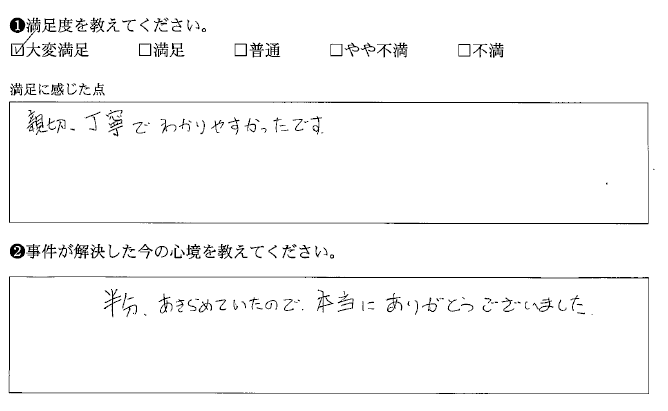 ❶満足度を教えてください。
☑大変満足 □満足 □普通 □やや不満 □不満
満足に感じた点
親切、丁寧でわかりやすかったです。
❷事件が解決した今の心境を教えてください。
半分、あきらめていたので、本当にありがとうございました。